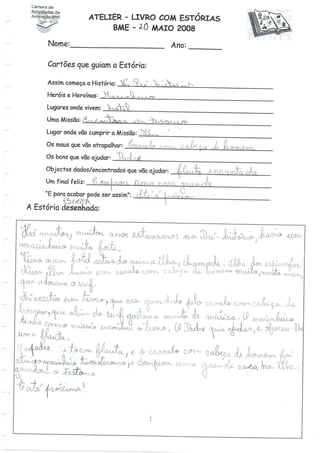 Carteira de
Actividades da
ATELIER - LIVRO COM ESTÓRIAS
BME - 20 MAIO 2008
Nome: Ano:
Cartões que guiam a Estória:
Assim começa a História: Na Pré-história
Heróis e Heroínas: Marinheiro
Lugares onde vivem: hotel
Uma Missão: Encontrar um tesouro
Lugar onde vão cumprir a Missão: Ilha
Os maus que vão atrapalhar: Cavalo com cabeça de homem
Os bons que vão ajudar: Padre
Objectos dados/encontrados que vão ajudar: flauta encantada
Um final feliz: Comprou uma casa grande
"E para acabar pode ser assim": Até à próxima
A Estória desenhada:
escrita
Há muitos, muitos anos estávamos na Pré-história, havia um
marinheiro muito forte,
Vivia num hotel numa ilha, chamada: Ilha dos
Nessa ilha havia um cavalo com cabeça de homem muito, muito mau,
que adorava o surf.
Aí existia um tesouro, que era guardado pelo cavalo com cabeça de
homem, que além do surf gostava muito de música. O marinheiro
tinha como missão encontrar o tesouro. O Padre quis ajudar, e ofereceu-lhe
uma flauta.
O padre tocou flauta, e o cavalo com cabeça de homem foi
e comprou uma grande casa na ilha.
E até à próxima!
1